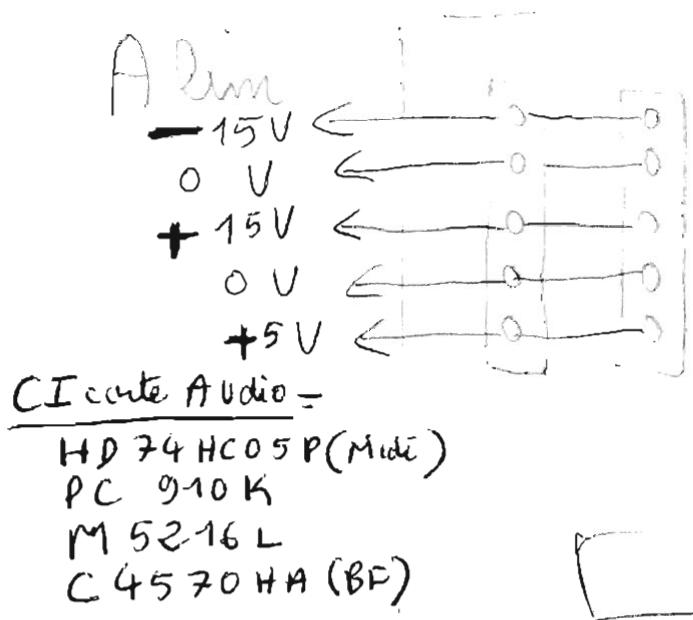 Alim
- 15 V
0 V
+ 15 V
0 V
+5 V
CI carte Audio =
HD 74 HC05P (Midi)
PC 910 K
M 5216 L
C 4570 HA (BF)